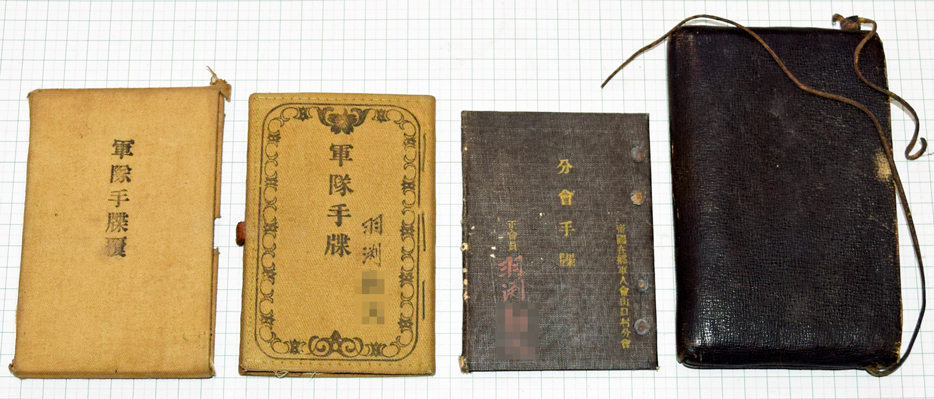 軍隊手牒覆
軍隊手牒
羽渕
分會手牒
正會員
羽渕
帝國在郷軍人會山口村分會